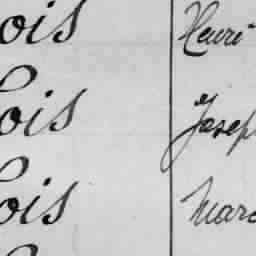 ois Henri
ois Josep
ois Marc